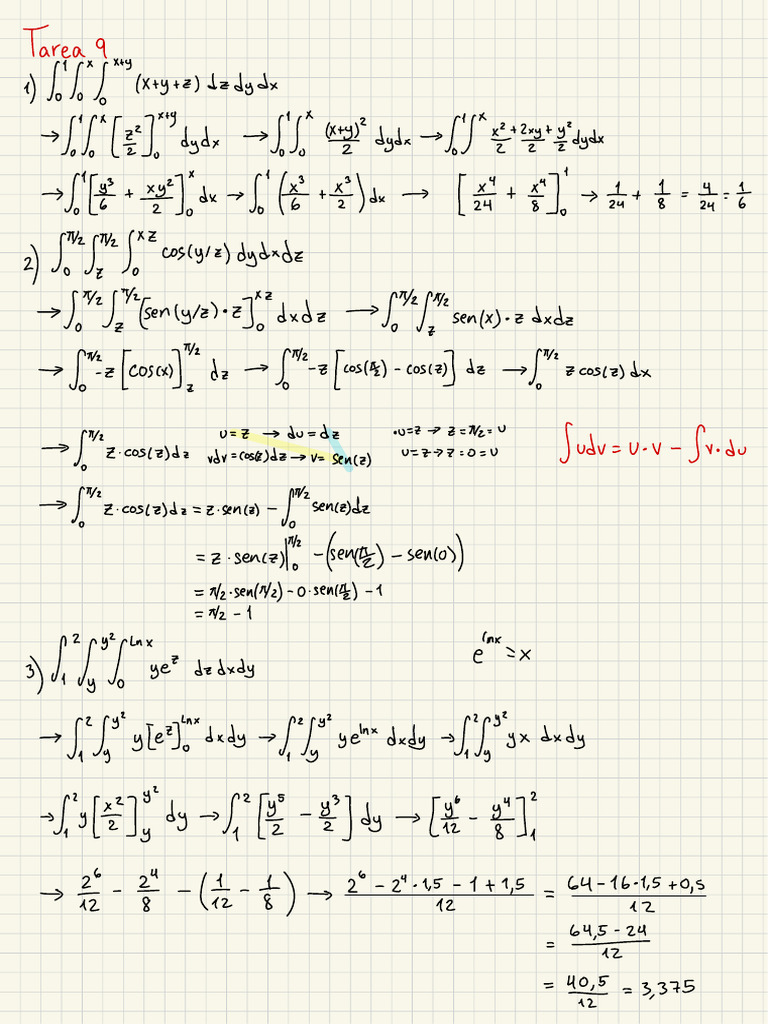 Tarea 9
1) ∫₀¹ ∫₀ˣ ∫₀ˣ⁺ʸ (x+y+z) dz dy dx
→ ∫₀¹ ∫₀ˣ [z²/2]₀ˣ⁺ʸ dydx → ∫₀¹ ∫₀ˣ (x+y)²/2 dydx → ∫₀¹ ∫₀ˣ x²/2 + 2xy/2 + y²/2 dydx
→ ∫₀¹ [y³/6 + xy²/2]₀ˣ dx → ∫₀¹ (x³/6 + x³/2) dx → [x⁴/24 + x⁴/8]₀¹ → 1/24 + 1/8 = 4/24 = 1/6
2) ∫₀^(π/2) ∫_z^(π/2) ∫₀^(xz) cos(y/z) dydxdz
→ ∫₀^(π/2) ∫_z^(π/2) [sen(y/z)·z]₀^(xz) dxdz → ∫₀^(π/2) ∫_z^(π/2) sen(x)·z dxdz
→ ∫₀^(π/2) -z [cos(x)]_z^(π/2) dz → ∫₀^(π/2) -z [cos(π/2) - cos(z)] dz → ∫₀^(π/2) z cos(z) dx
→ ∫₀^(π/2) z·cos(z)dz u=z → du=dz ·u=z → z=π/2=u ∫udv = u·v - ∫v·du
vdv=cos(z)dz → v= sen(z) u=z→z=0=u
→ ∫₀^(π/2) z·cos(z)dz = z·sen(z) - ∫₀^(π/2) sen(z)dz
= z·sen(z)|₀^(π/2) - (sen(π/2) - sen(0))
= π/2·sen(π/2) - 0·sen(π/2) - 1
= π/2 - 1
3) ∫₁² ∫_y^(y²) ∫₀^(Lnx) ye^z dz dxdy e^(lnx) = x
→ ∫₁² ∫_y^(y²) y[e^z]₀^(Lnx) dxdy → ∫₁² ∫_y^(y²) ye^(lnx) dxdy → ∫₁² ∫_y^(y²) yx dxdy
→ ∫₁² y[x²/2]_y^(y²) dy → ∫₁² [y⁵/2 - y³/2] dy → [y⁶/12 - y⁴/8]₁²
→ 2⁶/12 - 2⁴/8 - (1/12 - 1/8) → (2⁶ - 2⁴·1,5 - 1 + 1,5)/12 = (64 - 16·1,5 + 0,5)/12
= (64,5 - 24)/12
= 40,5/12 = 3,375